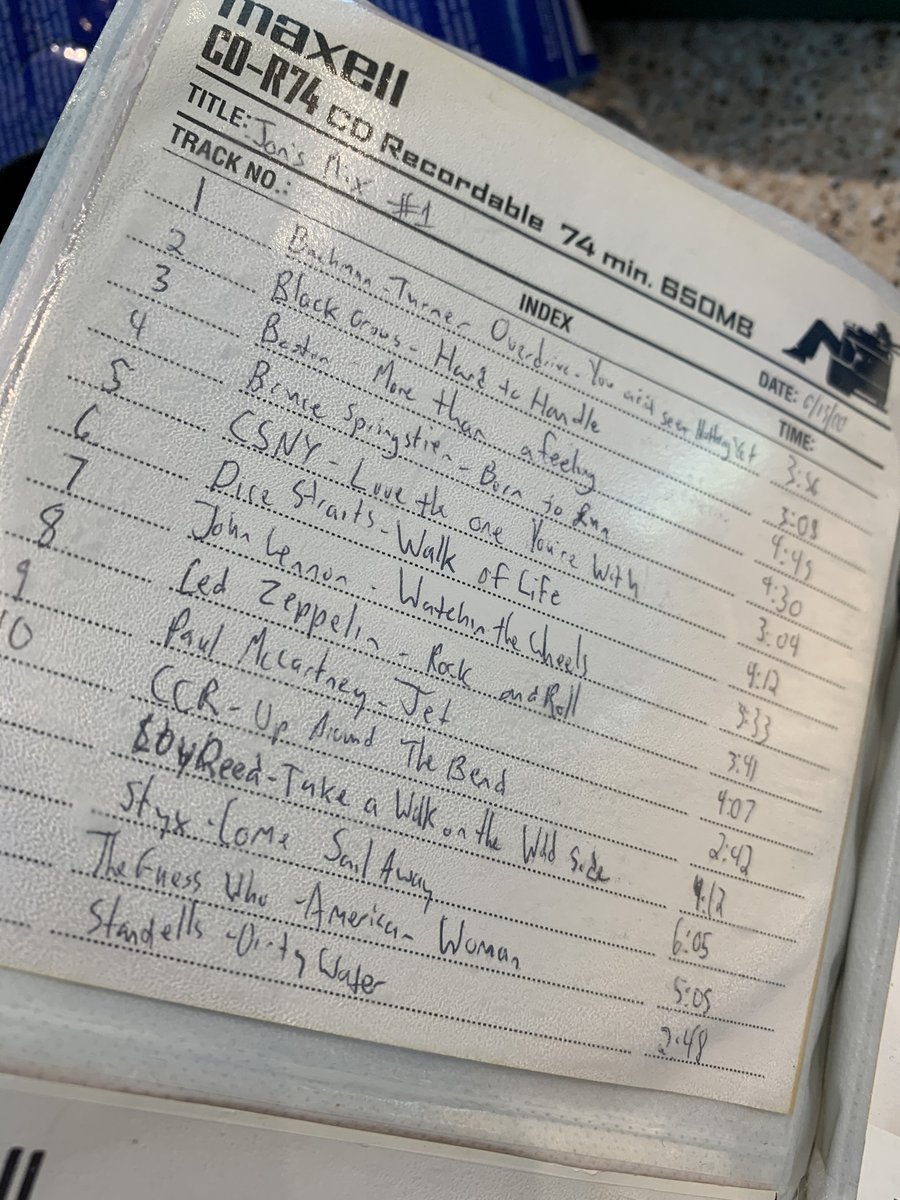 maxell
CD-R74 CD Recordable 74 min. 650MB
TITLE: Jon's Mix #1
DATE: 6/15/00
TRACK NO.: INDEX TIME:
1 Bachman-Turner Overdrive - You aint seen Nothing Yet 3:56
2 Black Crows - Hard to Handle 3:08
3 Boston - More than a feeling 4:45
4 Bruce Springstien - Born to Run 4:30
5 CSNY - Love the one You're With 3:04
6 Dire Straits - Walk of Life 4:12
7 John Lennon - Watchin the Wheels 3:33
8 Led Zeppelin - Rock and Roll 3:41
9 Paul McCartney - Jet 4:07
10 CCR - Up Around The Bend 2:42
Reed - Take a Walk on the Wild Side 4:12
Styx - Come Sail Away 6:05
The Guess Who - American Woman 5:05
Standells - Dirty Water 2:48